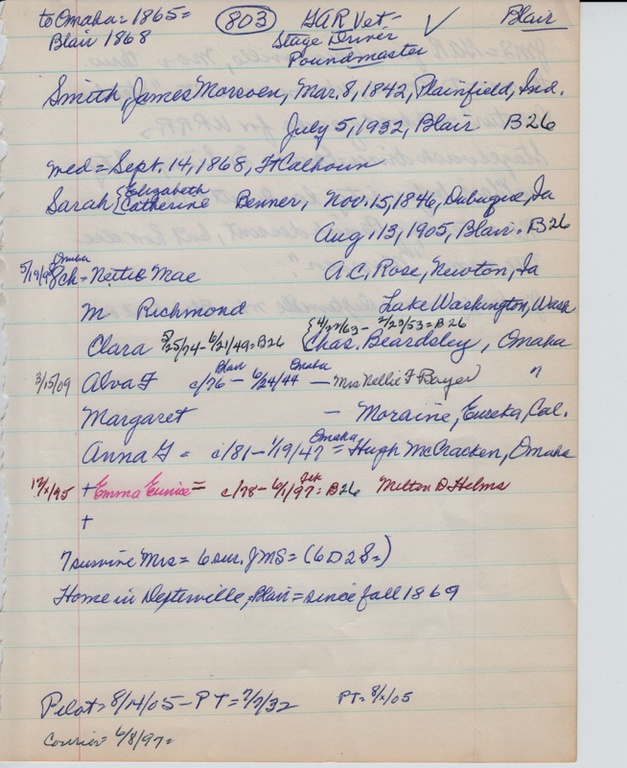 to Omaha = 1865 = 803 GAR Vet - ✓ Blair
Blair 1868 Stage Driver
Poundmaster
Smith, James Morsven, Mar. 8, 1842, Plainfield, Ind.
July 5, 1932, Blair B26
med = Sept. 14, 1868, Ft Calhoun
Sarah { Elizabeth Catherine Benner, Nov. 15, 1846, Dubuque, Ia
Aug 13, 1905, Blair = B26
Omaha
5/19/98 8ch = Nettie Mae A.C. Rose, Newton, Ia
M Richmond Lake Washington, Wash
Clara 5/25/74 - 6/21/49 = B26 { 4/27/63 - 2/23/53 = B26 Chas. Beardsley, Omaha
3/15/09 Alva F c/76 Blair - 6/24/44 Omaha - Mrs Nellie F Boyer "
Margaret - Moraine, Eureka, Cal.
Anna G = c/81 - 1/19/47 Omaha = Hugh McCracken, Omaha
12/x/95 + Emma Eunice = c/78 - 6/1/97 = B26 Milton D Helms
+
7 survive Mrs = 6 sur. JMS = (6 D 2 S =)
Home in Dexterville, Blair = since fall 1869
Pilot = 8/14/05 - PT = 7/7/32 PT = 8/x/05
Courier = 6/8/97 =